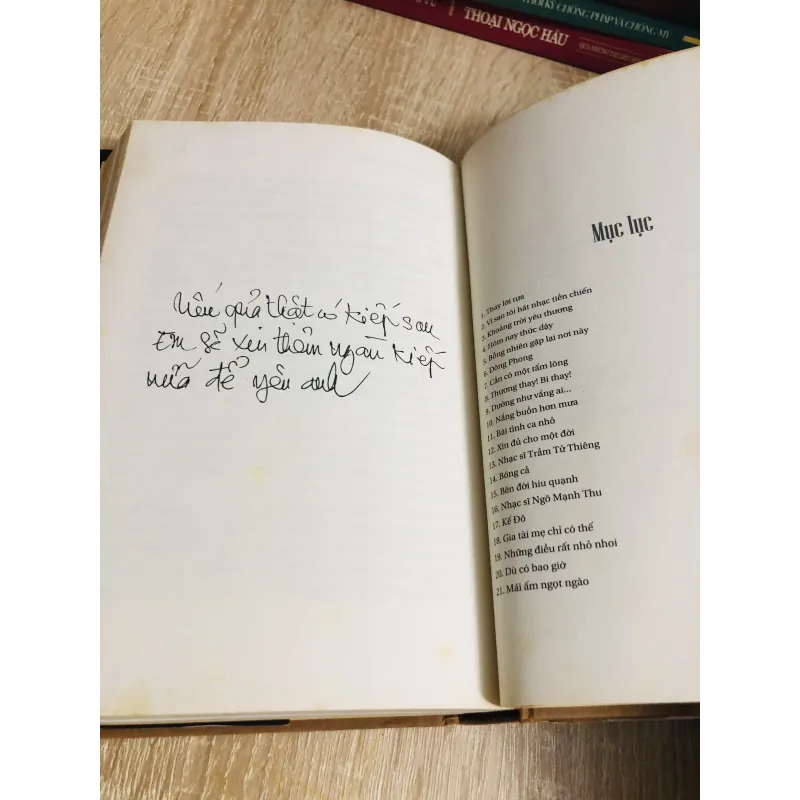 THỜI KỲ CHỐNG PHÁP VÀ CHỐNG MỸ
THOẠI NGỌC HẦU
Nếu quả thật có kiếp sau
Em sẽ xin thêm ngàn kiếp
nữa để yêu anh
Mục lục
1. Thay lời tựa
2. Vì sao tôi hát nhạc tiền chiến
3. Khoảng trời yêu thương
4. Hôm nay thức dậy
5. Bỗng nhiên gặp lại nơi này
6. Đông Phong
7. Cần có một tấm lòng
8. Thương thay! Bi thay!
9. Dường như vắng ai...
10. Nắng buồn hơn mưa
11. Bài tình ca nhỏ
12. Xin đủ cho một đời
13. Nhạc sĩ Trầm Tử Thiêng
14. Bóng cả
15. Bên đời hiu quạnh
16. Nhạc sĩ Ngô Mạnh Thu
17. Kế Đô
18. Gia tài mẹ chỉ có thế
19. Những điều rất nhỏ nhoi
20. Dù có bao giờ
21. Mái ấm ngọt ngào